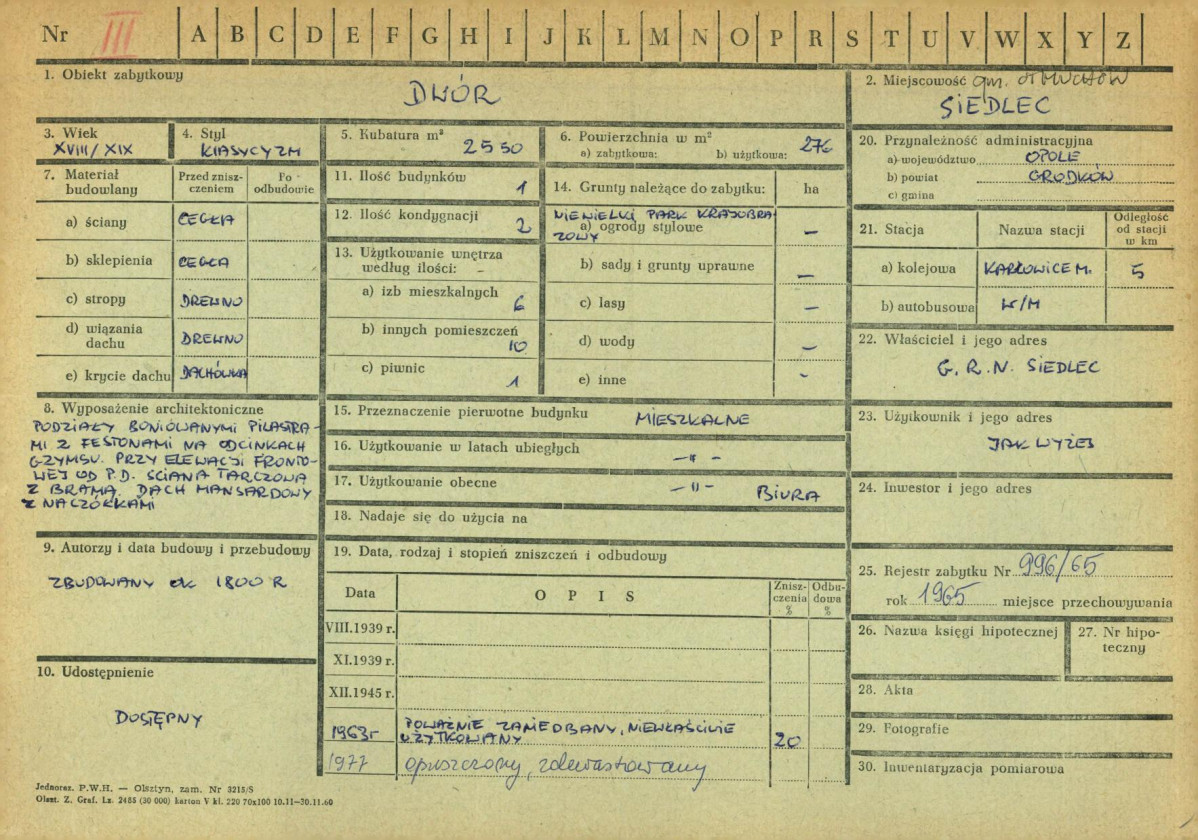 Nr III A B C D E F G H I J K L M N O P R S T U V W X Y Z
1. Obiekt zabytkowy
DWÓR
2. Miejscowość gm. OTMUCHÓW
SIEDLEC
3. Wiek
XVIII/XIX
4. Styl
KLASYCYZM
5. Kubatura m³
2550
6. Powierzchnia w m²
a) zabytkowa: b) użytkowa: 276
7. Materiał budowlany
Przed zniszczeniem
Po odbudowie
a) ściany CEGŁA
b) sklepienia CEGŁA
c) stropy DREWNO
d) wiązania dachu DREWNO
e) krycie dachu DACHÓWKA
8. Wyposażenie architektoniczne
PODZIAŁY BONIOWANYMI PILASTRA-
MI Z FESTONAMI NA ODCINKACH
GZYMSU. PRZY ELEWACJI FRONTO-
WEJ OD P.D. ŚCIANA TARCZOWA
Z BRAMĄ. DACH MANSARDOWY
Z NACZÓŁKAMI
9. Autorzy i data budowy i przebudowy
ZBUDOWANY ok 1800 R
10. Udostępnienie
DOSTĘPNY
11. Ilość budynków 1
12. Ilość kondygnacji 2
13. Użytkowanie wnętrza
według ilości: –
a) izb mieszkalnych 6
b) innych pomieszczeń 10
c) piwnic 1
14. Grunty należące do zabytku: ha
NIEWIELKI PARK KRAJOBRA
ZOWY
a) ogrody stylowe –
b) sady i grunty uprawne –
c) lasy –
d) wody –
e) inne -
15. Przeznaczenie pierwotne budynku MIESZKALNE
16. Użytkowanie w latach ubiegłych –"–
17. Użytkowanie obecne –"– BIURA
18. Nadaje się do użycia na
19. Data, rodzaj i stopień zniszczeń i odbudowy
Data OPIS Znisz-
czenia
% Odbu-
dowa
%
VIII.1939 r.
XI.1939 r.
XII.1945 r.
1963r POWAŻNIE ZANIEDBANY, NIEWŁAŚCIWIE
UŻYTKOWANY 20
1977 opuszczony, zdewastowany
20. Przynależność administracyjna
a) województwo OPOLE
b) powiat GRODKÓW
c) gmina
21. Stacja Nazwa stacji Odległość
od stacji
w km
a) kolejowa KARŁOWICE M. 5
b) autobusowa W/M
22. Właściciel i jego adres
G. R. N. SIEDLEC
23. Użytkownik i jego adres
JAK WYŻEJ
24. Inwestor i jego adres
25. Rejestr zabytku Nr 996/65
rok 1965 miejsce przechowywania
26. Nazwa księgi hipotecznej
27. Nr hipo-
teczny
28. Akta
29. Fotografie
30. Inwentaryzacja pomiarowa
Jednoraz. P.W.H. — Olsztyn, zam. Nr 3215/S
Olszt. Z. Graf. Lz. 2485 (30 000) karton V kl. 220 70x100 10.11—30.11.60